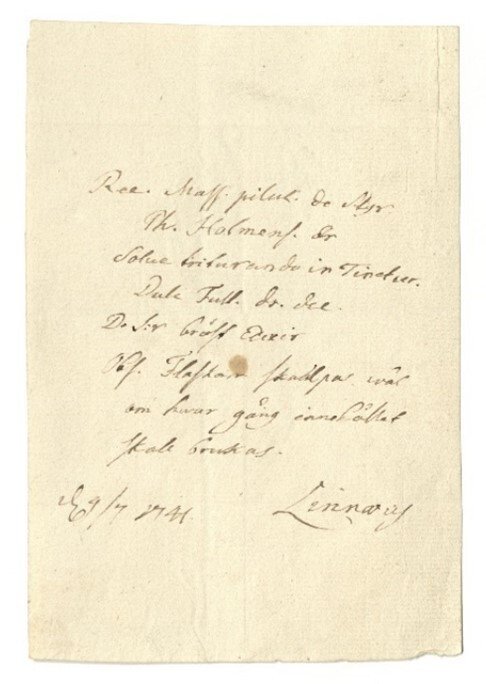 Rec. Mass. pilul. de Styr.
Th. Holmens. dr
Solve triturando in Tinctur.
Dulc Full. dr. dec.
D. S. bröst Elixir
Obs. Flaskan skall wäl
om hwar gång innehållet
skall brukas.
d 9/7 1741 Linnæus